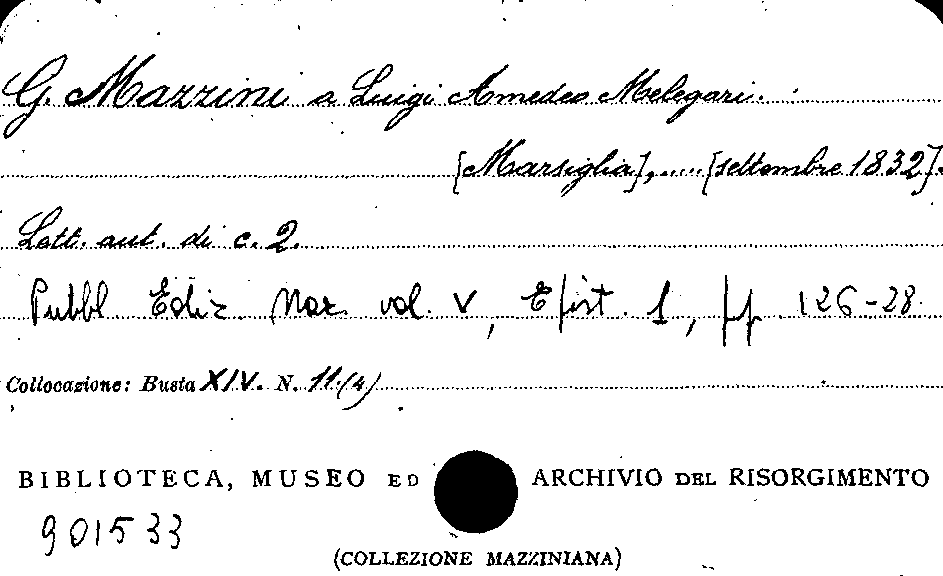 G. Mazzini a Luigi Amedeo Melegari.
[Marsiglia],..... [settembre 1832].
Lett. aut. di c. 2.
Pubbl. Ediz. Naz. vol. V, Epist. 1, pp. 126-28.
Collocazione: Busta XIV. N. 11.(4)
BIBLIOTECA, MUSEO ED ARCHIVIO DEL RISORGIMENTO
901533
(COLLEZIONE MAZZINIANA)